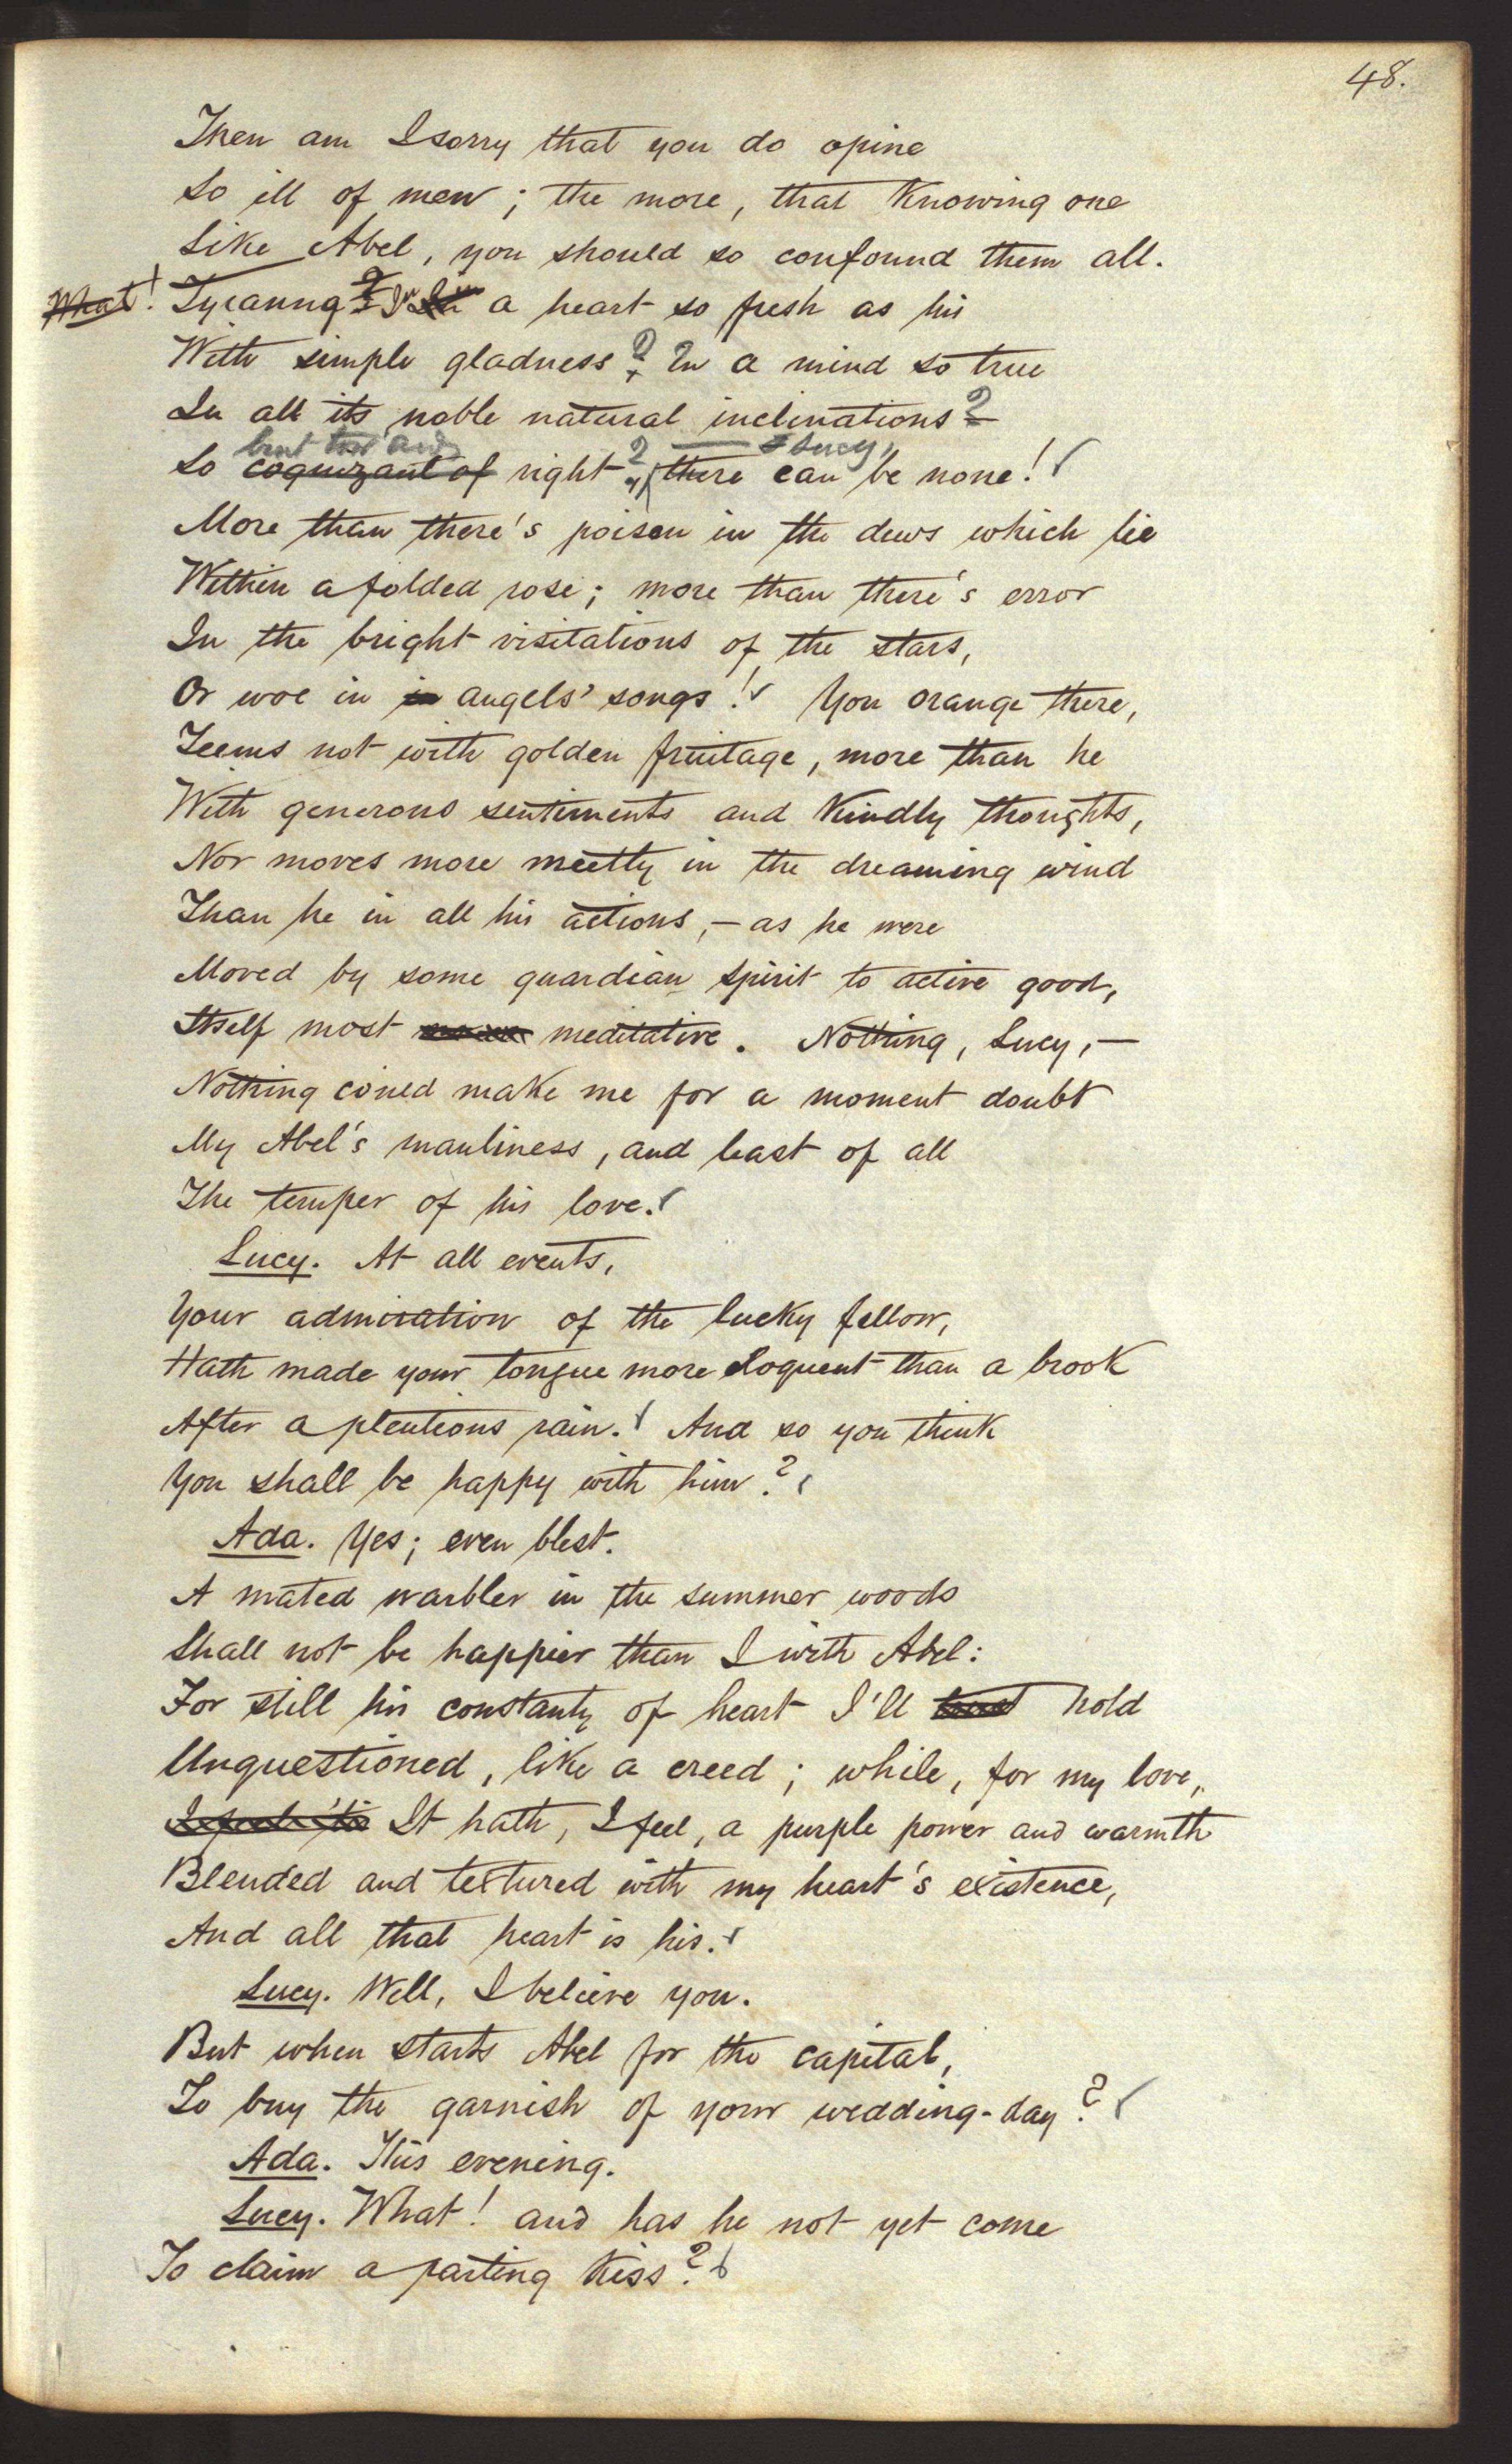 48.
Then am I sorry that you do opine
So ill of men; the more, that Knowing one
Like Abel, you should so confound them all.
What! Tyranny? In a heart so fresh as his
With simple gladness? In a mind so true
In all its noble natural inclinations?
but toward Lucy,
So cognizant of right? — there can be none!
More than there's poison in the dews which lie
Within a folded rose; more than there's error
In the bright visitations of the stars,
Or woe in in angels' songs! Yon orange there,
Teems not with golden fruitage, more than he
With generous sentiments and Kindly thoughts,
Nor moves more meetly in the dreaming wind
Than he in all his actions, — as he were
Moved by some guardian spirit to active good,
Itself most meditative. Nothing, Lucy, —
Nothing could make me for a moment doubt
My Abel's manliness, and least of all
The temper of his love.
Lucy. At all events,
Your admiration of the lucky fellow,
Hath made your tongue more eloquent than a brook
After a plenteous rain. And so you think
You shall be happy with him?
Ada. Yes; even blest.
A mated warbler in the summer woods
Shall not be happier than I with Abel:
For still his constancy of heart I'll trust hold
Unquestioned, like a creed; while, for my love,
I feel 'tis It hath, I feel, a purple power and warmth
Blended and textured with my heart's existence,
And all that heart is his.
Lucy. Well, I believe you.
But when starts Abel for the capital,
To buy the garnish of your wedding-day?
Ada. This evening.
Lucy. What! and has he not yet come
To claim a parting Kiss?